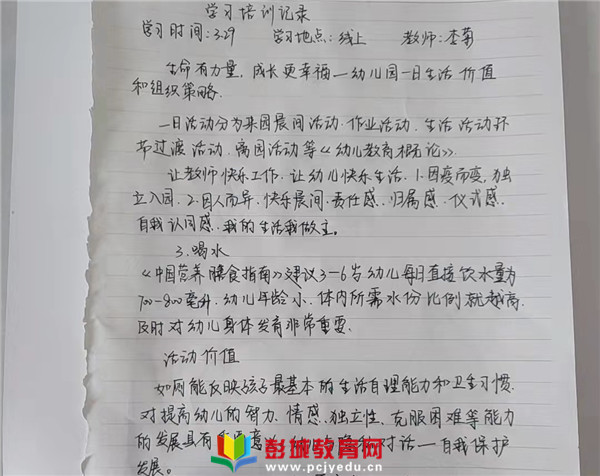 学习培训记录
学习时间:3.29 学习地点:线上 教师:李菊
生命有力量,成长更幸福—幼儿园一日生活价值
和组织策略.
一日活动分为来园晨间活动.作业活动.生活活动环
节过渡活动.离园活动等《幼儿教育概论》.
让教师快乐工作,让幼儿快乐生活.1.因疫而变,独
立入园.2.因人而异.快乐晨间.责任感.归属感.仪式感.
自我认同感.我的生活我做主。
3.喝水
《中国营养膳食指南》建议3-6岁幼儿每日直接饮水量为
700-800毫升.幼儿年龄小.体内所需水份比例就越高.
及时对幼儿身体发育非常重要.
活动价值
如厕能反映孩子最基本的生活自理能力和卫生习惯.
对提高幼儿的智力、情感、独立性、克服困难等能力
的发展具有 对话—自我保护
发展。
彭城教育网
www.pcjyedu.cn